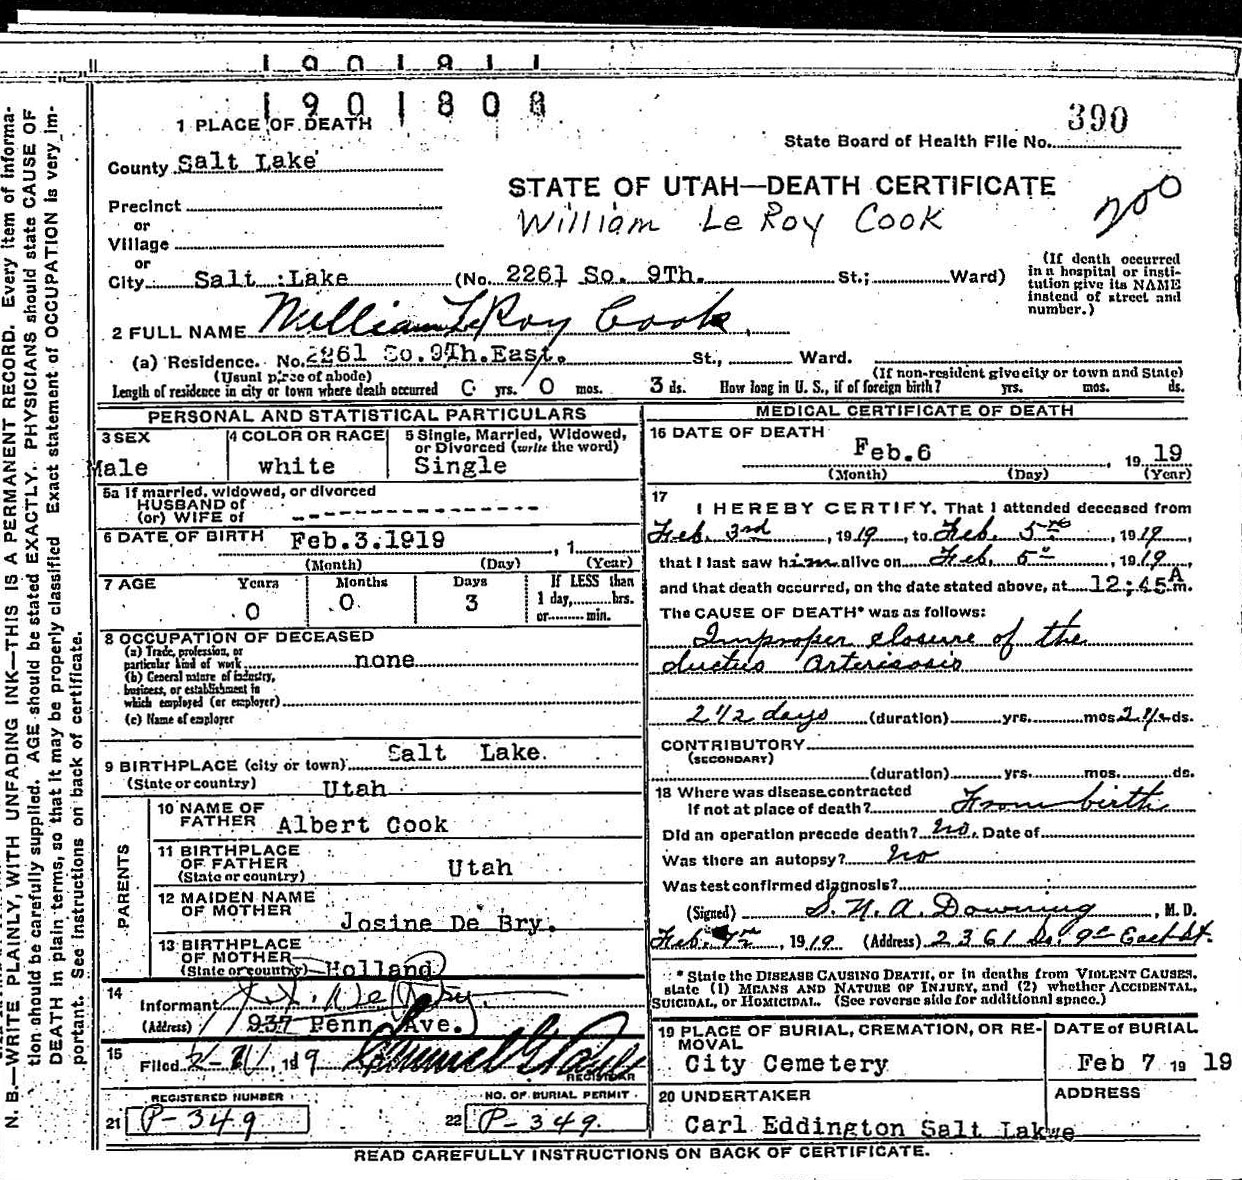 1901911
1901808
390
1 PLACE OF DEATH
State Board of Health File No.
County Salt Lake
STATE OF UTAH—DEATH CERTIFICATE
William Le Roy Cook
200
Precinct
or
Village
or
City Salt Lake (No. 2261 So. 9Th. St.; Ward)
(If death occurred in a hospital or institution give its NAME instead of street and number.)
2 FULL NAME William Le Roy Cook
(a) Residence. No. 2261 So. 9Th. East. St., Ward.
(Usual place of abode) (If non-resident give city or town and State)
Length of residence in city or town where death occurred 0 yrs. 0 mos. 3 ds. How long in U. S., if of foreign birth? yrs. mos. ds.
PERSONAL AND STATISTICAL PARTICULARS
3 SEX
Male
4 COLOR OR RACE
white
5 Single, Married, Widowed, or Divorced (write the word)
Single
5a If married, widowed, or divorced
HUSBAND of
(or) WIFE of
6 DATE OF BIRTH Feb.3.1919 , 1
(Month) (Day) (Year)
7 AGE Years Months Days If LESS than
0 0 3 1 day, hrs.
or min.
8 OCCUPATION OF DECEASED
(a) Trade, profession, or
particular kind of work none
(b) General nature of industry,
business, or establishment in
which employed (or employer)
(c) Name of employer
9 BIRTHPLACE (city or town) Salt Lake.
(State or country) Utah
PARENTS
10 NAME OF
FATHER Albert Cook
11 BIRTHPLACE
OF FATHER
(State or country) Utah
12 MAIDEN NAME
OF MOTHER Josine De Bry.
13 BIRTHPLACE
OF MOTHER
(State or country) Holland
14
Informant
(Address) 937 Penn Ave.
15
Filed 19 9
REGISTRAR
REGISTERED NUMBER
21 P-349
NO. OF BURIAL PERMIT
22 P-349.
MEDICAL CERTIFICATE OF DEATH
16 DATE OF DEATH
Feb.6 , 19 19
(Month) (Day) (Year)
17
I HEREBY CERTIFY, That I attended deceased from
Feb. 3rd, 1919, to Feb. 5, 1919,
that I last saw him alive on Feb. 5, 1919,
and that death occurred, on the date stated above, at 12:45 A m.
The CAUSE OF DEATH* was as follows:
Improper closure of the
ductus arteriosis
2 1/2 days (duration) yrs. mos. 2 1/2 ds.
CONTRIBUTORY
(SECONDARY)
(duration) yrs. mos. ds.
18 Where was disease contracted
If not at place of death? From birth
Did an operation precede death? No. Date of
Was there an autopsy? No
Was test confirmed diagnosis?
(Signed) S. N. A. Downing, M. D.
Feb. , 1919 (Address) 2361 So. 9 East St.
* State the DISEASE CAUSING DEATH, or in deaths from VIOLENT CAUSES,
state (1) MEANS AND NATURE OF INJURY, and (2) whether ACCIDENTAL,
SUICIDAL, or HOMICIDAL. (See reverse side for additional space.)
19 PLACE OF BURIAL, CREMATION, OR RE-
MOVAL
City Cemetery
DATE of BURIAL
Feb 7 19 19
20 UNDERTAKER
Carl Eddington Salt Lakwe
ADDRESS
READ CAREFULLY INSTRUCTIONS ON BACK OF CERTIFICATE.
N. B.—WRITE PLAINLY, WITH UNFADING INK—THIS IS A PERMANENT RECORD. Every item of informa-
tion should be carefully supplied. AGE should be stated EXACTLY. PHYSICIANS should state CAUSE OF
DEATH in plain terms, so that it may be properly classified Exact statement of OCCUPATION is very im-
portant. See instructions on back of certificate.